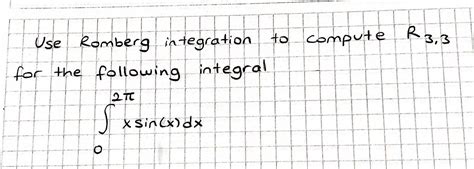 Use Romberg integration to compute R3,3
for the following integral
2π
∫ x sin(x) dx
0